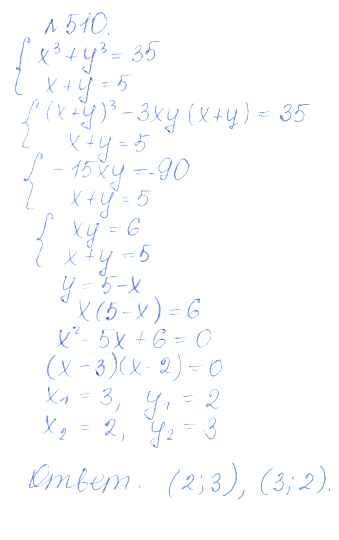 № 510.
{ x³ + y³ = 35
x + y = 5
{ (x+y)³ - 3xy (x+y) = 35
x + y = 5
{ - 15xy = -90
x + y = 5
{ xy = 6
x + y = 5
y = 5 - x
x (5 - x) = 6
x² - 5x + 6 = 0
(x - 3)(x - 2) = 0
x₁ = 3, y₁ = 2
x₂ = 2, y₂ = 3
Ответ. (2; 3), (3; 2).